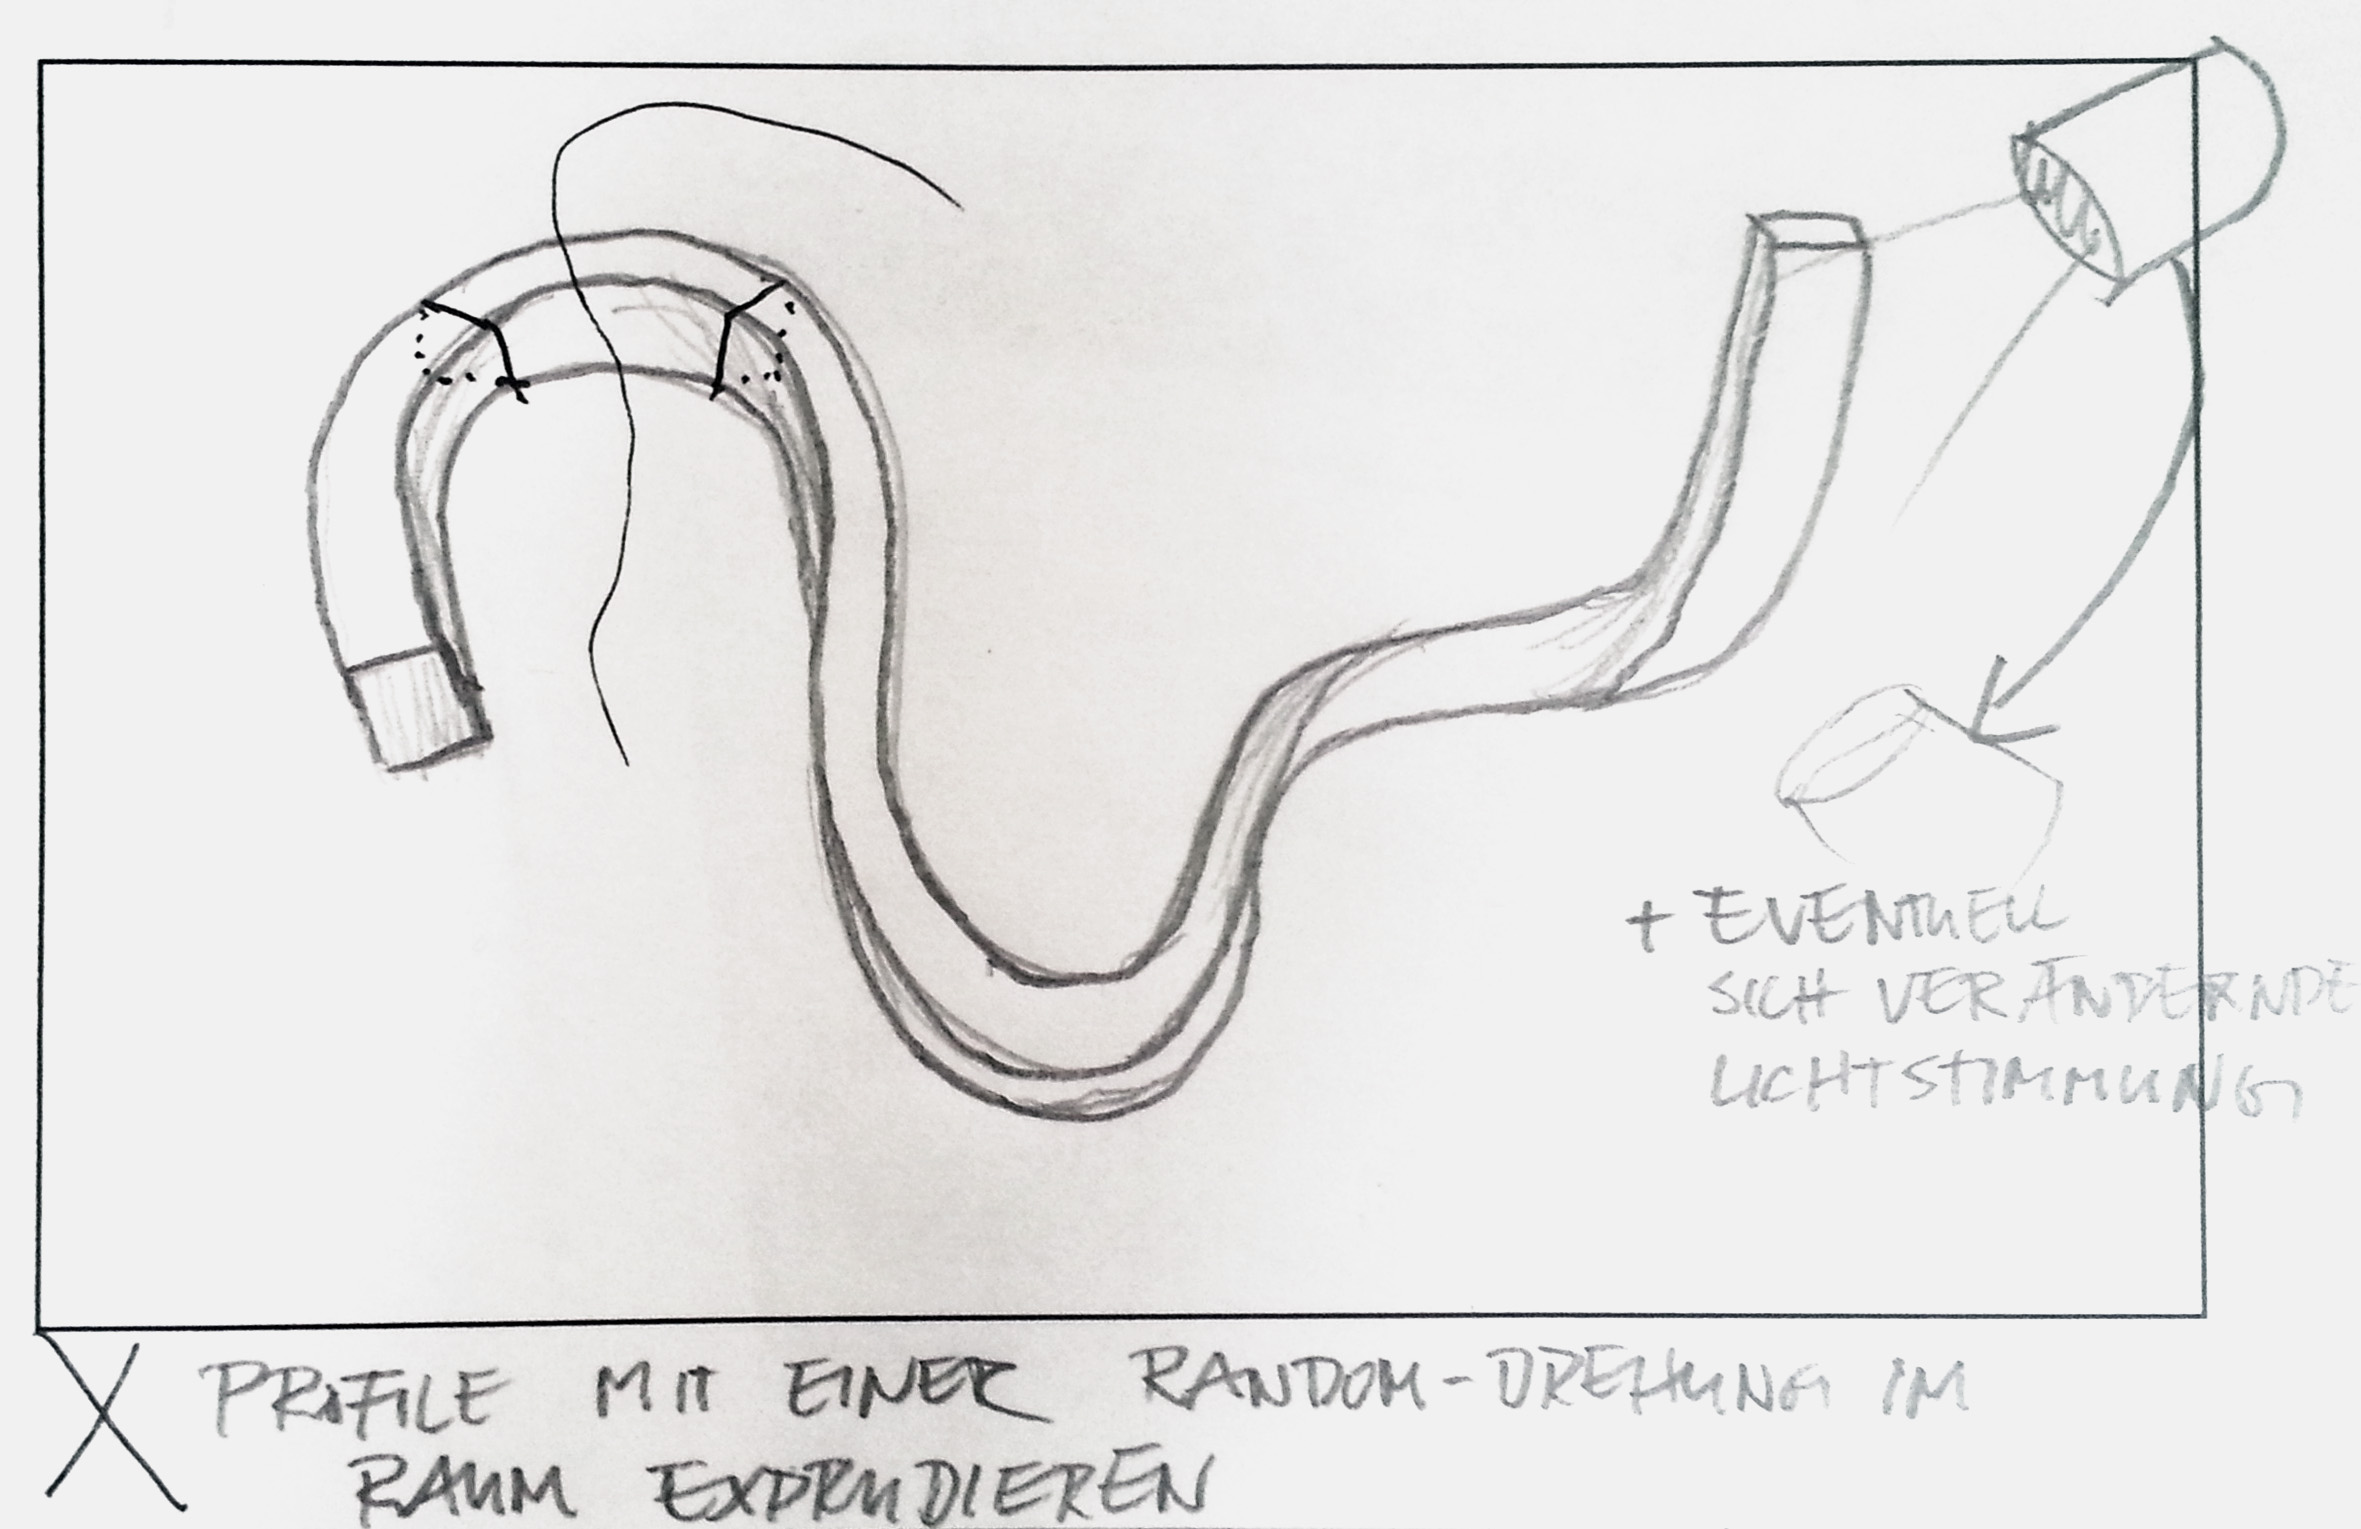 + EVENTUELL
SICH VERÄNDERNDE
LICHTSTIMMUNG
X PROFILE MIT EINER RANDOM-DREHUNG IM
RAUM EXDRUDIEREN